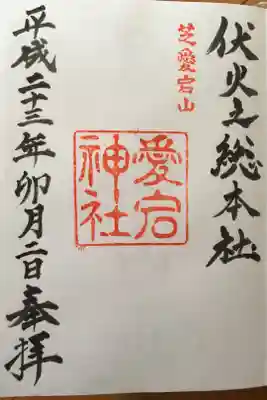 伏火之総本社
芝愛宕山
愛宕
神社
平成二十三年卯月二日奉拝